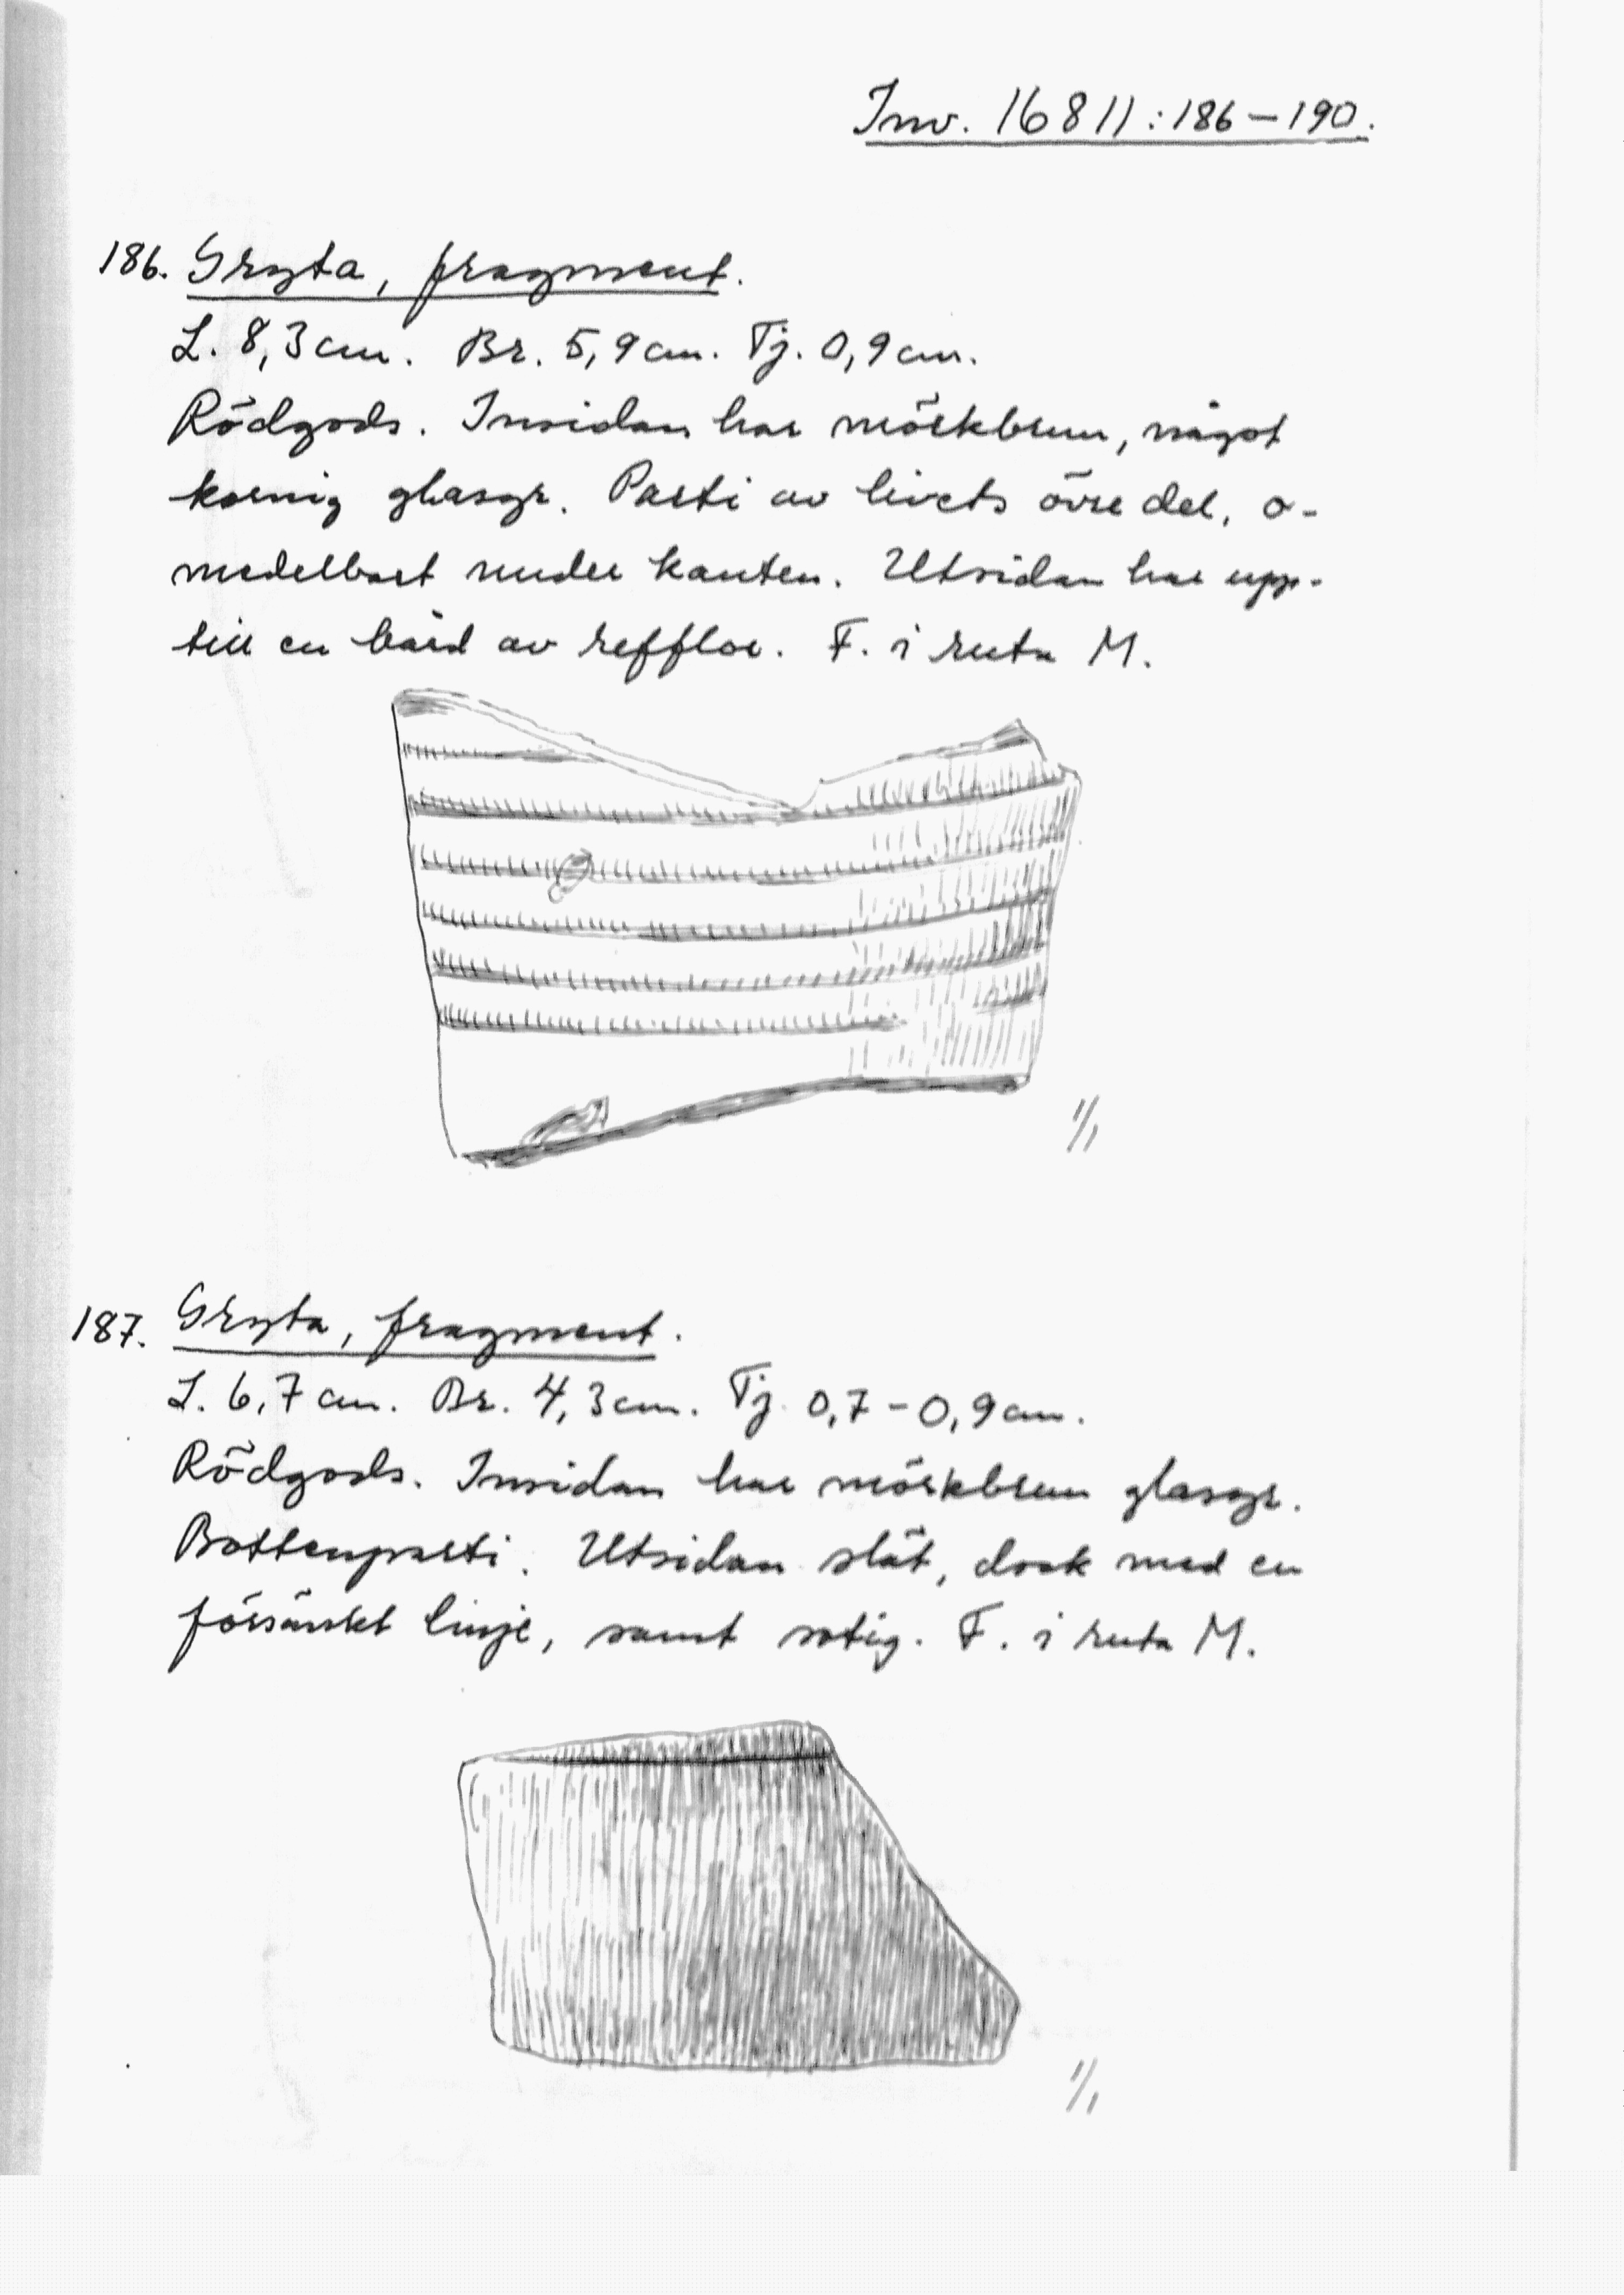 Inv. 16811:186–190.
186. Gryta, fragment.
L. 8,3 cm. Br. 5,9 cm. Tj. 0,9 cm.
Rödgods. Insidan har mörkbrun, något
kornig glasyr. Parti av livets övre del, o-
medelbart under kanten. Utsidan har upp-
till en bård av refflor. F. i ruta M.
1/1
187. Gryta, fragment.
L. 6,7 cm. Br. 4,3 cm. Tj. 0,7–0,9 cm.
Rödgods. Insidan har mörkbrun glasyr.
Bottenparti. Utsidan slät, dock med en
försänkt linje, samt sotig. F. i ruta M.
1/1